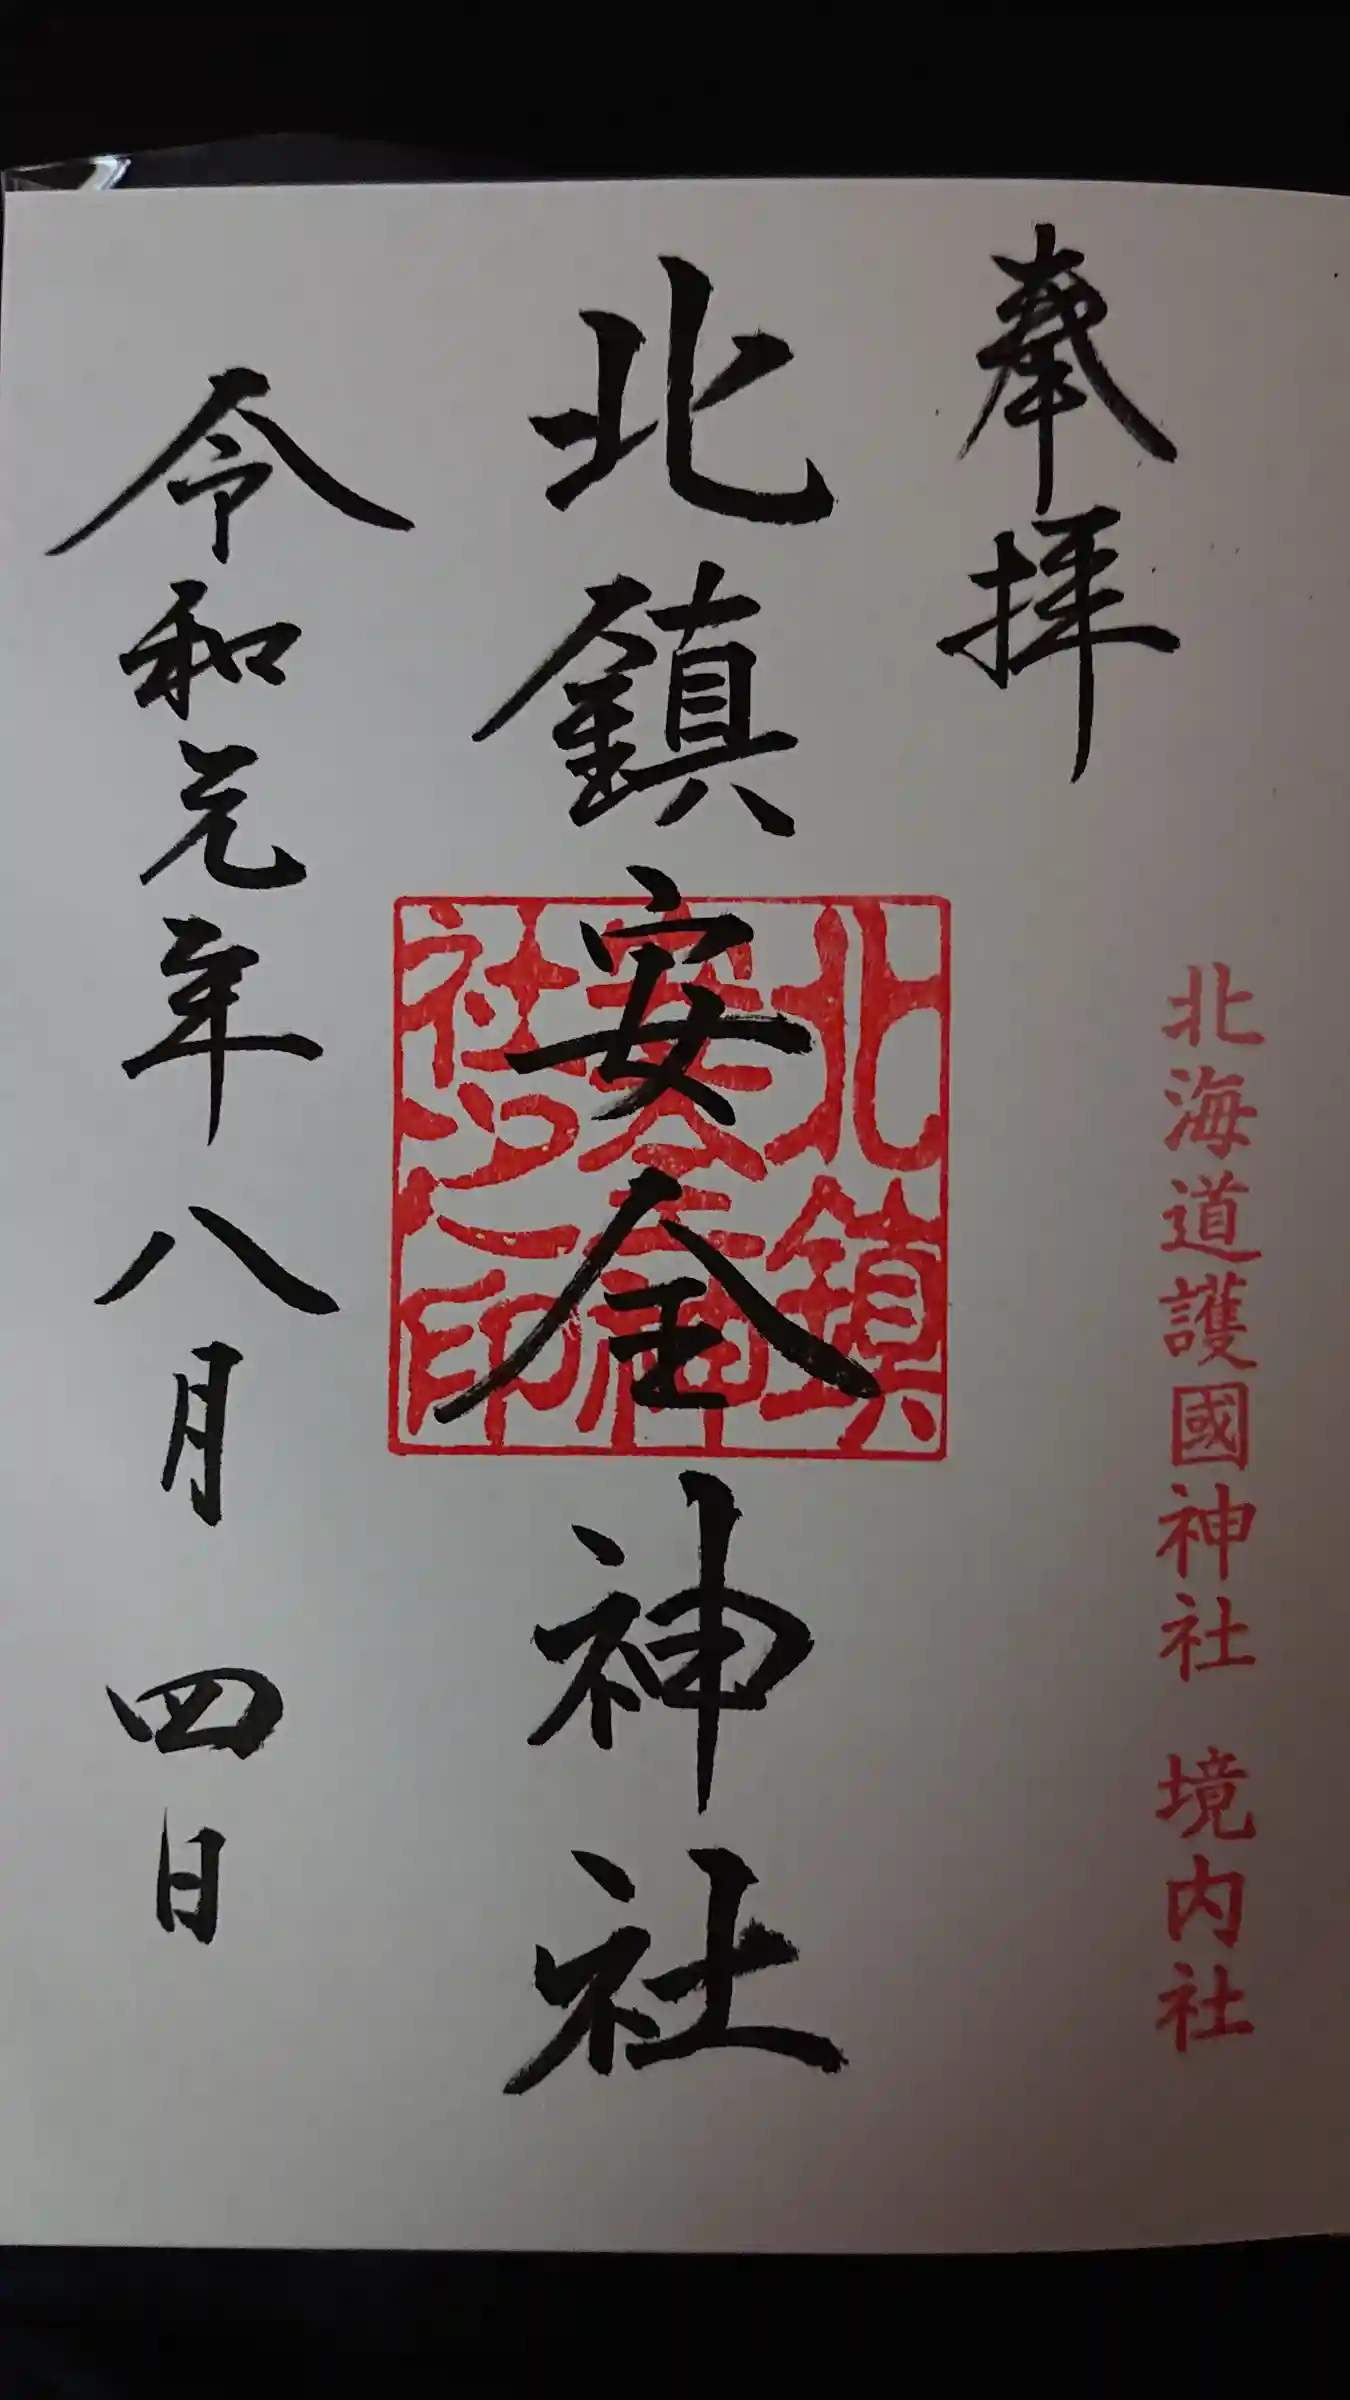 奉拝
北海道護國神社 境内社
北鎮安全神社
北鎮
安全神
社之印
令和元年八月四日